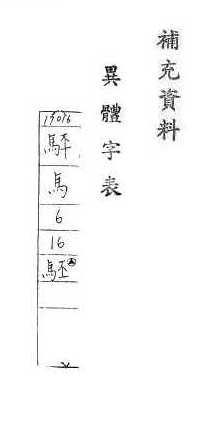 補充資料
異體字表
馬
6
16
駓